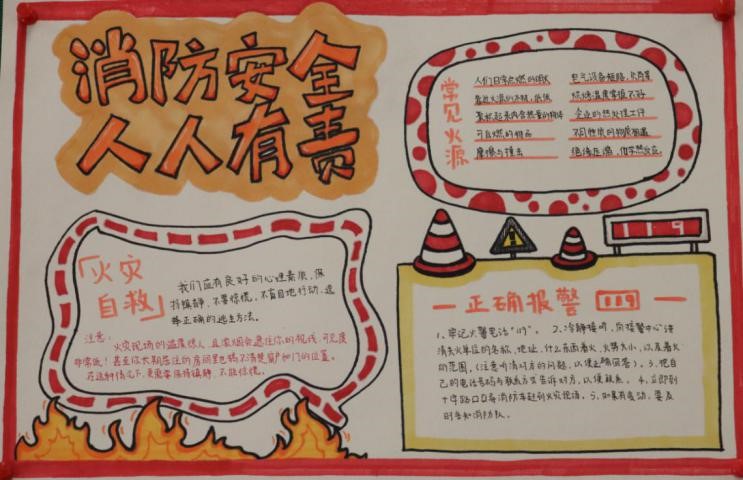 消防安全
人人有责
常见火源
人们日常点燃的明火
电气设备短路,负荷等
靠近火源的衣被,纸张
烘烤温度掌握不好
聚积起来内含热量的物体
企业的热处理工件
可自燃的物品
不同性质的物质相遇
摩擦与撞击
绝缘压缩,化学热反应.
119
「火灾
自救」
我们应有良好的心理素质,保
持镇静,不要惊慌,不盲目地行动,选
择正确的逃生方法。
注意:
火灾现场的温度惊人,且浓烟会遮住你的视线,可见度
非常低!甚至你长期居住的房间里也搞不清楚窗户和门的位置。
在这种情况下,更需要保持镇静,不能惊慌。
正确报警 119
1、牢记火警电话"119"。 2、冷静接听,向接警中心讲
清失火单位的名称,地址,什么东西着火,火势大小,以及着火
的范围,(注意听清对方的问题,以便正确回答)。3、把自
己的电话号码与联系方式告诉对方,以便联系。4、立即到
十字路口口等消防车赶到火灾现场。5、如果有变动,要及
时告知消防队。